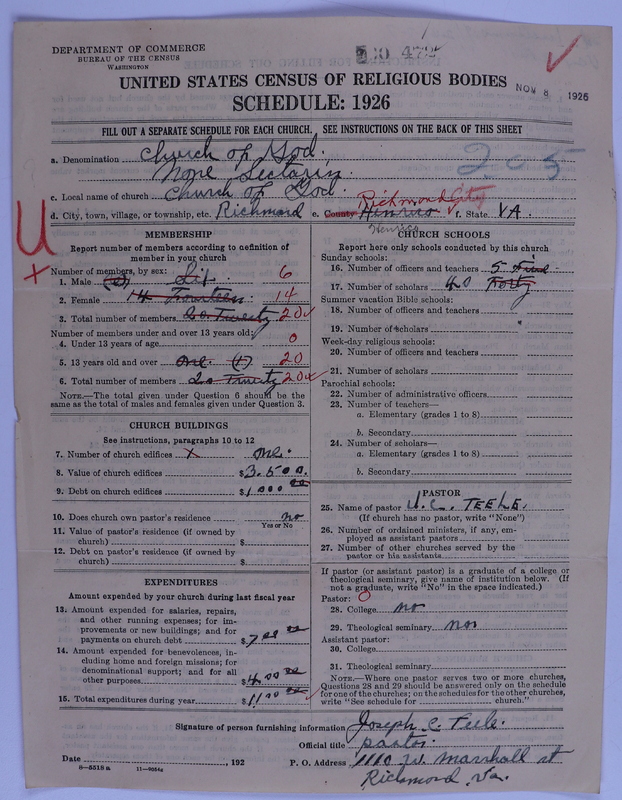 DEPARTMENT OF COMMERCE
BUREAU OF THE CENSUS
WASHINGTON
UNITED STATES CENSUS OF RELIGIOUS BODIES
NOV 8 1926
SCHEDULE: 1926
FILL OUT A SEPARATE SCHEDULE FOR EACH CHURCH. SEE INSTRUCTIONS ON THE BACK OF THIS SHEET
a. Denomination Church of God.
None Sectarin
205
c. Local name of church Church of God.
d. City, town, village, or township, etc. Richmond e. County Henrico Richmond City f. State VA.
Henrico
U
MEMBERSHIP
Report number of members according to definition of
member in your church
Number of members, by sex:
1. Male (6) Six 6
2. Female 14 Fourteen 14
3. Total number of members 20 Twenty 20
Number of members under and over 13 years old:
4. Under 13 years of age 0
5. 13 years old and over One (1) 20
6. Total number of members 20 Twenty 20
NOTE.—The total given under Question 6 should be
the same as the total of males and females given under Question 3.
CHURCH BUILDINGS
See instructions, paragraphs 10 to 12
7. Number of church edifices one.
8. Value of church edifices $3.500.
9. Debt on church edifices $1000 00
10. Does church own pastor's residence no
Yes or No
11. Value of pastor's residence (if owned by
church) $
12. Debt on pastor's residence (if owned by
church) $
EXPENDITURES
Amount expended by your church during last fiscal year
13. Amount expended for salaries, repairs,
and other running expenses; for im-
provements or new buildings; and for
payments on church debt $7.00 00
14. Amount expended for benevolences, in-
cluding home and foreign missions; for
denominational support; and for all
other purposes $4.00 00
15. Total expenditures during year $11.00 00
CHURCH SCHOOLS
Report here only schools conducted by this church
Sunday schools:
16. Number of officers and teachers 5 Five
17. Number of scholars 40 Forty
Summer vacation Bible schools:
18. Number of officers and teachers
19. Number of scholars
Week-day religious schools:
20. Number of officers and teachers
21. Number of scholars
Parochial schools:
22. Number of administrative officers
23. Number of teachers—
a. Elementary (grades 1 to 8)
b. Secondary
24. Number of scholars—
a. Elementary (grades 1 to 8)
b. Secondary
PASTOR
25. Name of pastor J.C. TEELE.
(If church has no pastor, write "None")
26. Number of ordained ministers, if any, em-
ployed as assistant pastors
27. Number of other churches served by the
pastor or his assistants
If pastor (or assistant pastor) is a graduate of a college or
theological seminary, give name of institution below. (If
not a graduate, write "No" in the space indicated.)
Pastor: 0
28. College no
29. Theological seminary no
Assistant pastor:
30. College
31. Theological seminary
NOTE.—Where one pastor serves two or more churches,
Questions 28 and 29 should be answered only on the schedule
for one of the churches; on the schedules for the other churches,
write "See schedule for church."
Signature of person furnishing information Joseph C. Teele.
Official title pastor.
Date , 192 P. O. Address 1110 W. Marshall st
8—5518a 11—9054a
Richmond, Va.